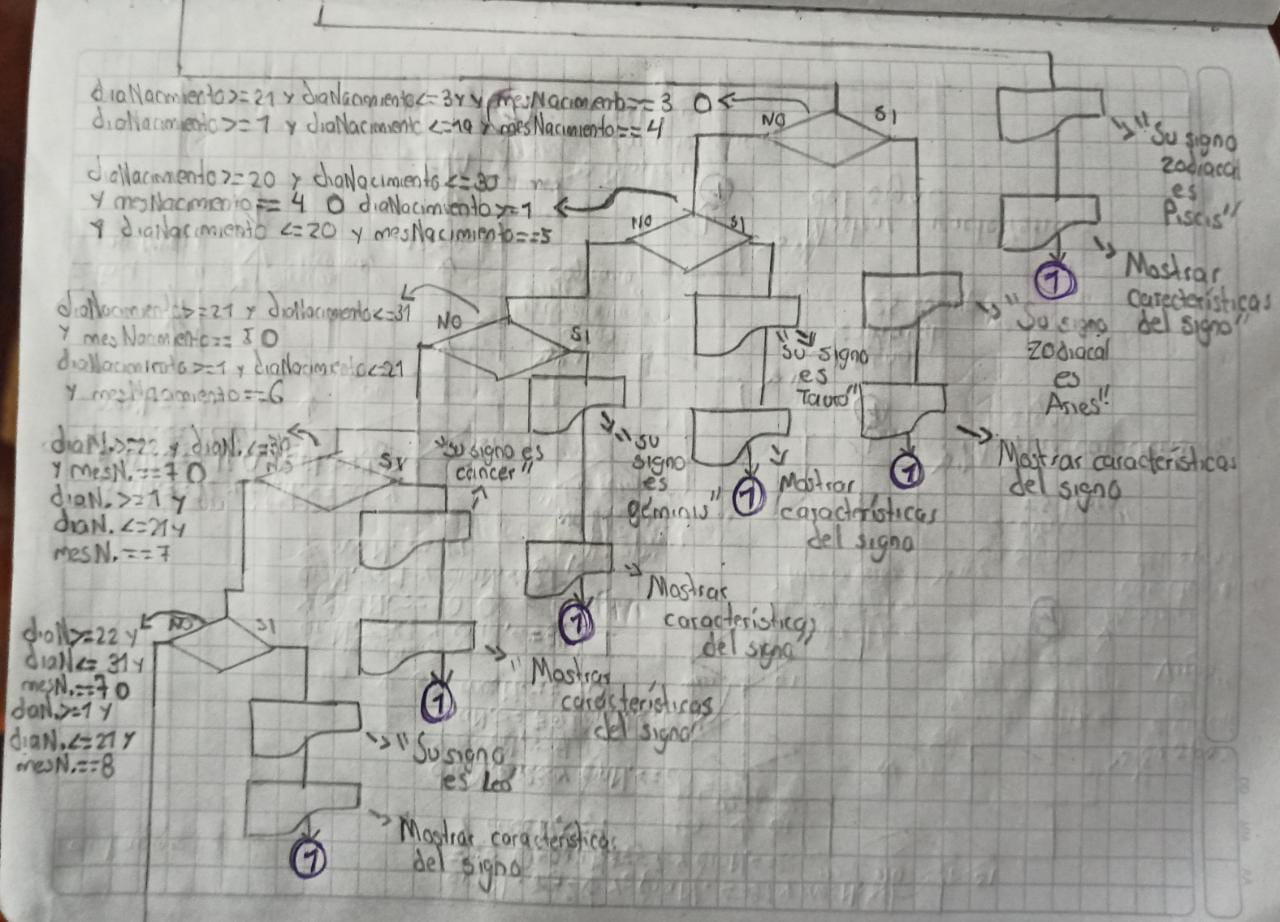 diaNacimiento>=21 y diaNacimiento<=31 y mesNacimiento==3 O
diaNacimiento>=1 y diaNacimiento<=19 y mesNacimiento==4
NO
SI
"Su signo
zodiacal
es
Piscis"
Mostrar
características
del signo"
1
diaNacimiento>=20 y diaNacimiento<=30
y mesNacimiento== 4 O diaNacimiento>=1
y diaNacimiento <=20 y mesNacimiento==5
NO
SI
"Su signo
zodiacal
es
Aries"
Mostrar características
del signo
1
diaNacimiento>=21 y diaNacimiento<=31
y mesNacimiento== 5 O
diaNacimiento>=1 y diaNacimiento<21
y mesNacimiento==6
NO
SI
"Su signo
es
Tauro"
Mostrar
características
del signo
1
diaN.>=22 y diaN.<=30
y mesN.==7 O
diaN.>=1 y
diaN.<=21 y
mesN.==7
NO
SI
"su
signo
es
géminis"
Mostrar
características
del signo"
1
"su signo es
cáncer"
"Mostrar
características
del signo"
1
diaN>=22 y
diaN<= 31 y
mesN.==7 O
diaN.>=1 y
diaN.<=21 y
mesN.==8
NO
SI
"Su signo
es Leo"
Mostrar características
del signo
1